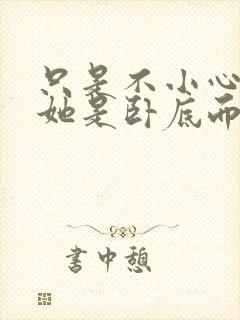 只是不小心
她是卧底而
書中憩